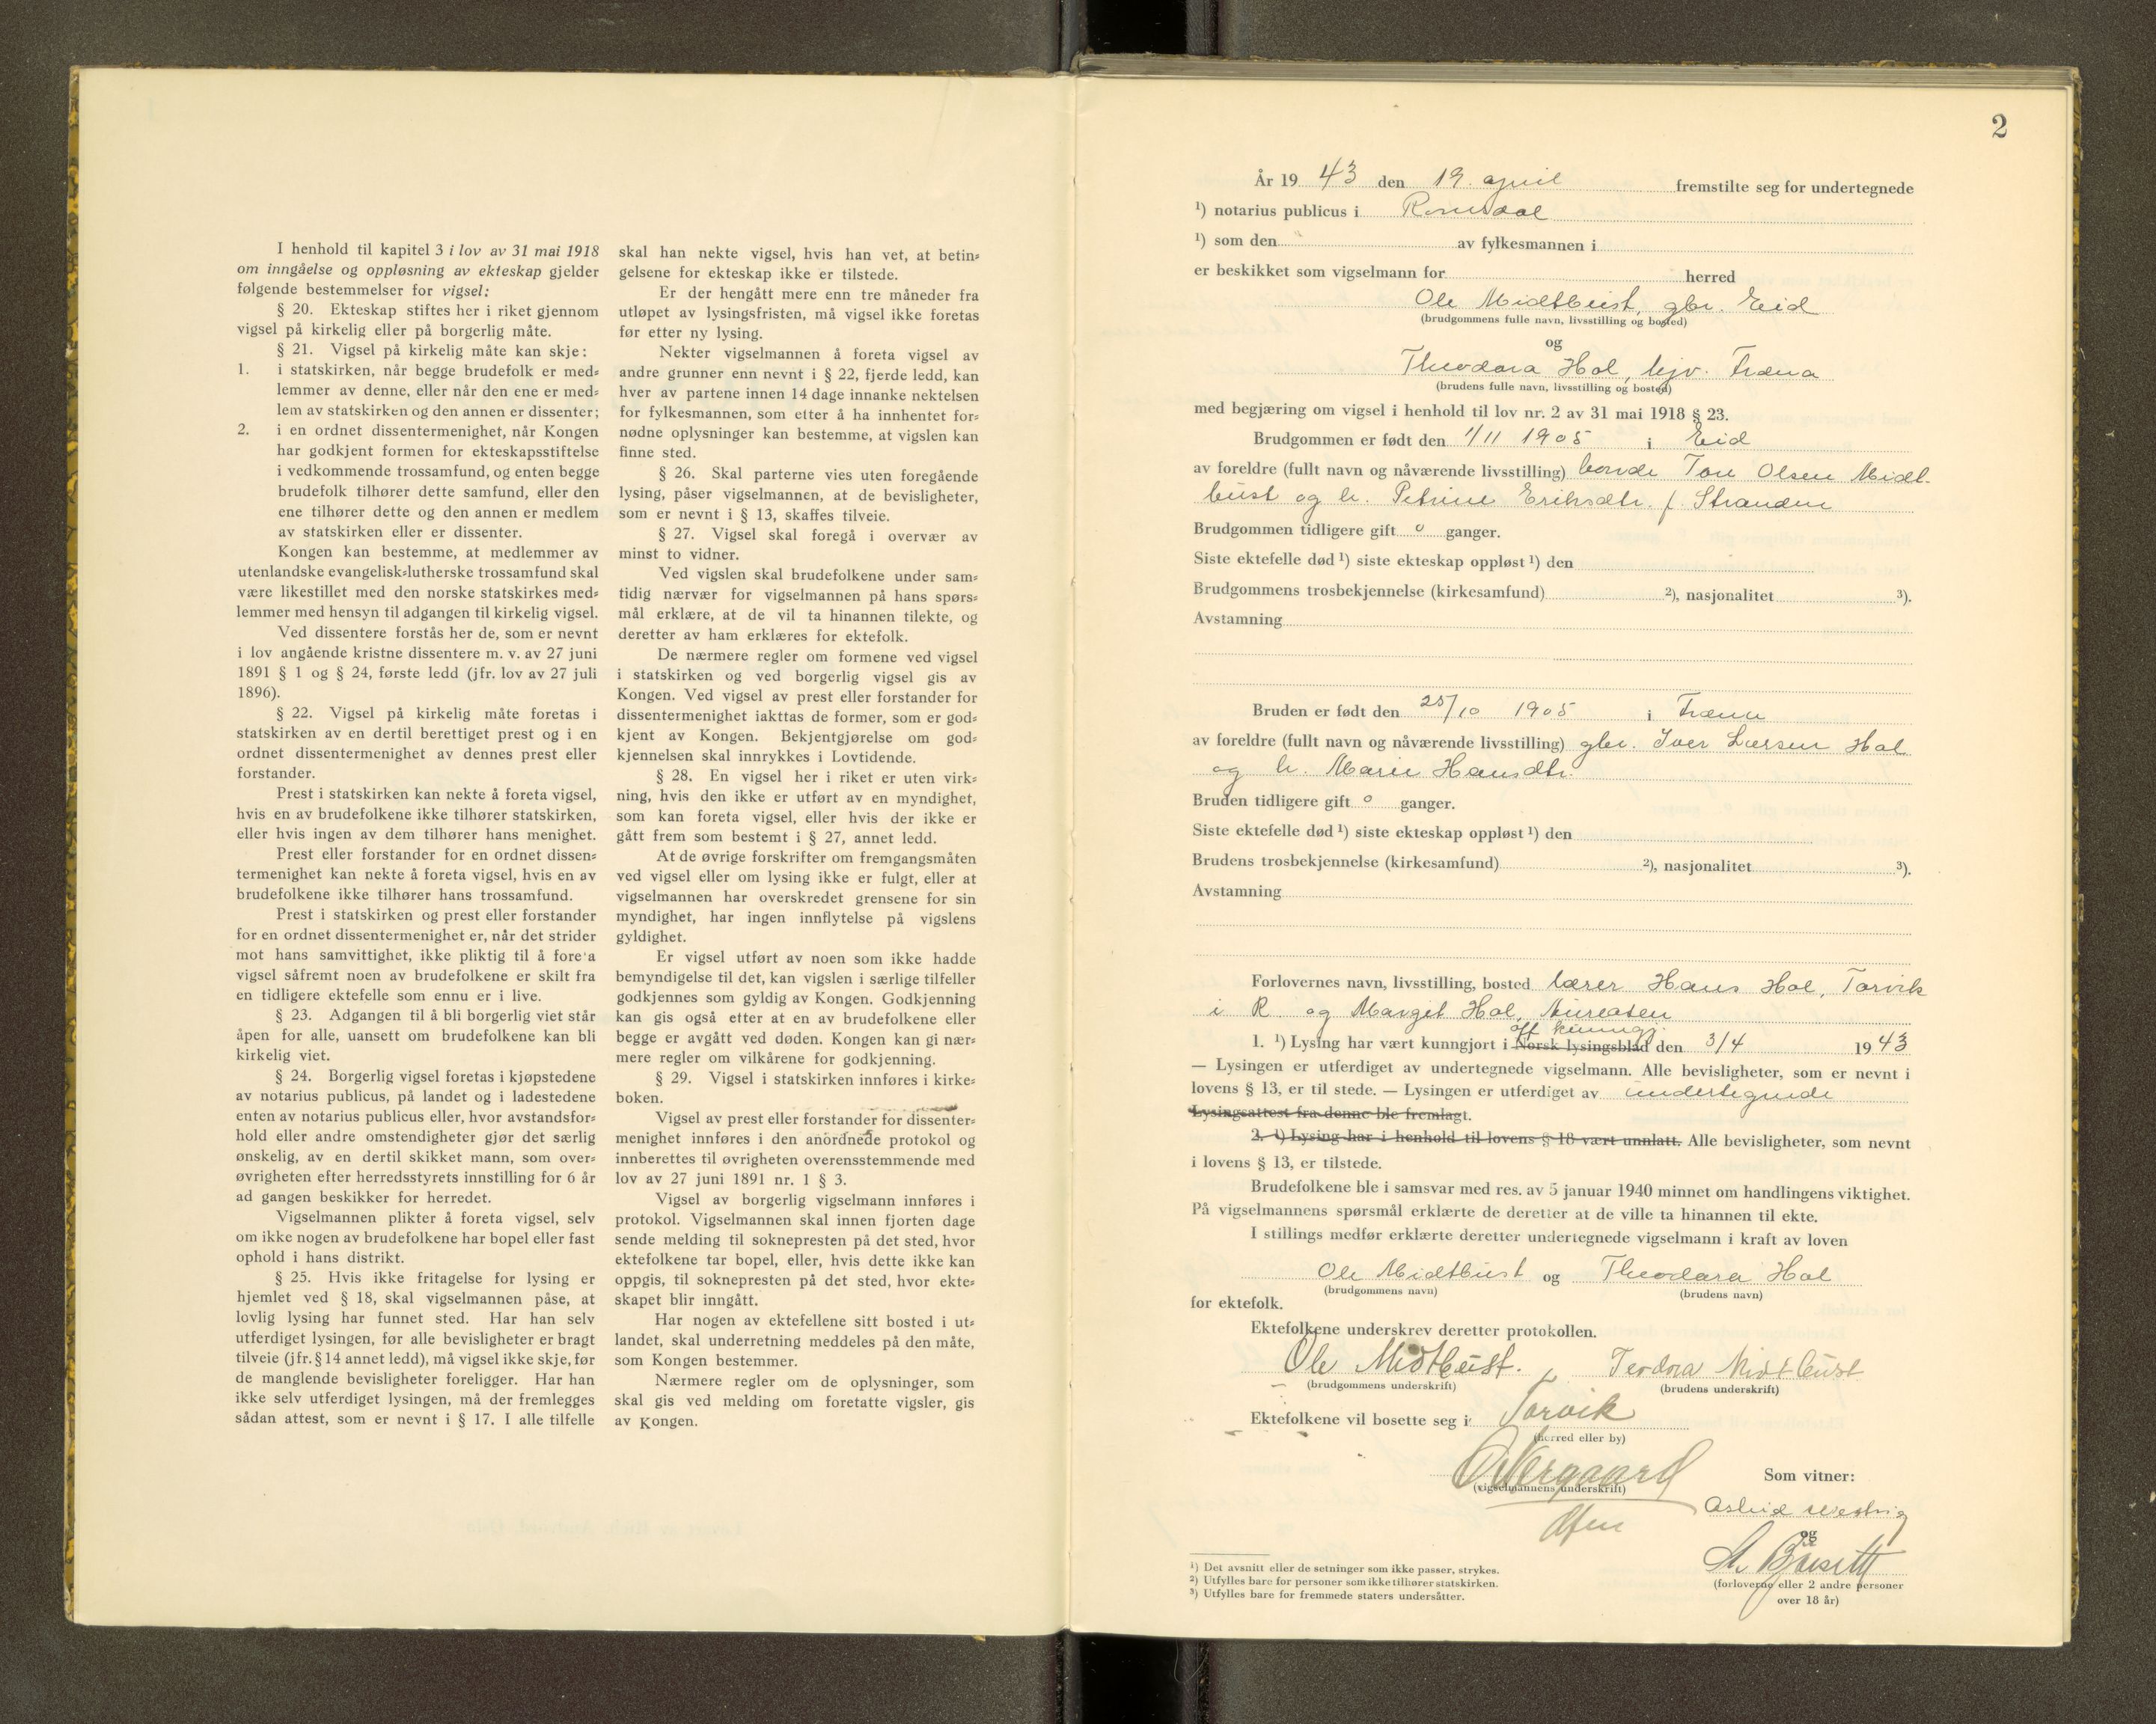 I henhold til kapitel 3 i lov av 31 mai 1918
om inngåelse og oppløsning av ekteskap gjelder
følgende bestemmelser for vigsel:
§ 20. Ekteskap stiftes her i riket gjennom
vigsel på kirkelig eller på borgerlig måte.
§ 21. Vigsel på kirkelig måte kan skje:
1. i statskirken, når begge brudefolk er med=
lemmer av denne, eller når den ene er med=
lem av statskirken og den annen er dissenter;
2. i en ordnet dissentermenighet, når Kongen
har godkjent formen for ekteskapsstiftelse
i vedkommende trossamfund, og enten begge
brudefolk tilhører dette samfund, eller den
ene tilhører dette og den annen er medlem
av statskirken eller er dissenter.
Kongen kan bestemme, at medlemmer av
utenlandske evangelisk=lutherske trossamfund skal
være likestillet med den norske statskirkes med=
lemmer med hensyn til adgangen til kirkelig vigsel.
Ved dissentere forstås her de, som er nevnt
i lov angående kristne dissentere m. v. av 27 juni
1891 § 1 og § 24, første ledd (jfr. lov av 27 juli
1896).
§ 22. Vigsel på kirkelig måte foretas i
statskirken av en dertil berettiget prest og i en
ordnet dissentermenighet av dennes prest eller
forstander.
Prest i statskirken kan nekte å foreta vigsel,
hvis en av brudefolkene ikke tilhører statskirken,
eller hvis ingen av dem tilhører hans menighet.
Prest eller forstander for en ordnet dissen=
termenighet kan nekte å foreta vigsel, hvis en av
brudefolkene ikke tilhører hans trossamfund.
Prest i statskirken og prest eller forstander
for en ordnet dissentermenighet er, når det strider
mot hans samvittighet, ikke pliktig til å fore'a
vigsel såfremt noen av brudefolkene er skilt fra
en tidligere ektefelle som ennu er i live.
§ 23. Adgangen til å bli borgerlig viet står
åpen for alle, uansett om brudefolkene kan bli
kirkelig viet.
§ 24. Borgerlig vigsel foretas i kjøpstedene
av notarius publicus, på landet og i ladestedene
enten av notarius publicus eller, hvor avstandsfor=
hold eller andre omstendigheter gjør det særlig
ønskelig, av en dertil skikket mann, som over=
øvrigheten efter herredsstyrets innstilling for 6 år
ad gangen beskikker for herredet.
Vigselmannen plikter å foreta vigsel, selv
om ikke nogen av brudefolkene har bopel eller fast
ophold i hans distrikt.
§ 25. Hvis ikke fritagelse for lysing er
hjemlet ved § 18, skal vigselmannen påse, at
lovlig lysing har funnet sted. Har han selv
utferdiget lysingen, før alle bevisligheter er bragt
tilveie (jfr. § 14 annet ledd), må vigsel ikke skje, før
de manglende bevisligheter foreligger. Har han
ikke selv utferdiget lysingen, må der fremlegges
sådan attest, som er nevnt i § 17. I alle tilfelle
skal han nekte vigsel, hvis han vet, at betin=
gelsene for ekteskap ikke er tilstede.
Er der hengått mere enn tre måneder fra
utløpet av lysingsfristen, må vigsel ikke foretas
før etter ny lysing.
Nekter vigselmannen å foreta vigsel av
andre grunner enn nevnt i § 22, fjerde ledd, kan
hver av partene innen 14 dage innanke nektelsen
for fylkesmannen, som etter å ha innhentet for=
nødne oplysninger kan bestemme, at vigslen kan
finne sted.
§ 26. Skal parterne vies uten foregående
lysing, påser vigselmannen, at de bevisligheter,
som er nevnt i § 13, skaffes tilveie.
§ 27. Vigsel skal foregå i overvær av
minst to vidner.
Ved vigslen skal brudefolkene under sam=
tidig nærvær for vigselmannen på hans spørs=
mål erklære, at de vil ta hinannen tilekte, og
deretter av ham erklæres for ektefolk.
De nærmere regler om formene ved vigsel
i statskirken og ved borgerlig vigsel gis av
Kongen. Ved vigsel av prest eller forstander for
dissentermenighet iakttas de former, som er god=
kjent av Kongen. Bekjentgjørelse om god=
kjennelsen skal innrykkes i Lovtidende.
§ 28. En vigsel her i riket er uten virk=
ning, hvis den ikke er utført av en myndighet,
som kan foreta vigsel, eller hvis der ikke er
gått frem som bestemt i § 27, annet ledd.
At de øvrige forskrifter om fremgangsmåten
ved vigsel eller om lysing ikke er fulgt, eller at
vigselmannen har overskredet grensene for sin
myndighet, har ingen innflytelse på vigslens
gyldighet.
Er vigsel utført av noen som ikke hadde
bemyndigelse til det, kan vigslen i særlige tilfeller
godkjennes som gyldig av Kongen. Godkjenning
kan gis også etter at en av brudefolkene eller
begge er avgått ved døden. Kongen kan gi nær=
mere regler om vilkårene for godkjenning.
§ 29. Vigsel i statskirken innføres i kirke=
boken.
Vigsel av prest eller forstander for dissenter=
menighet innføres i den anordnede protokol og
innberettes til øvrigheten overensstemmende med
lov av 27 juni 1891 nr. 1 § 3.
Vigsel av borgerlig vigselmann innføres i
protokol. Vigselmannen skal innen fjorten dage
sende melding til soknepresten på det sted, hvor
ektefolkene tar bopel, eller, hvis dette ikke kan
oppgis, til soknepresten på det sted, hvor ekte=
skapet blir inngått.
Har nogen av ektefellene sitt bosted i ut=
landet, skal underretning meddeles på den måte,
som Kongen bestemmer.
Nærmere regler om de oplysninger, som
skal gis ved melding om foretatte vigsler, gis
av Kongen.
2
År 1943 den 19. april fremstilte seg for undertegnede
¹) notarius publicus i Romsdal
¹) som den av fylkesmannen i
er beskikket som vigselmann for herred
Ole Midtbust, gbr. Eid
(brudgommens fulle navn, livsstilling og bosted)
og
Theodora Hol, hjv. Fræna
(brudens fulle navn, livsstilling og bosted)
med begjæring om vigsel i henhold til lov nr. 2 av 31 mai 1918 § 23.
Brudgommen er født den 1/11 1905 i Eid
av foreldre (fullt navn og nåværende livsstilling) bonde Tore Olsen Midt-
bust og h. Petrine Eriksdtr. f. Stranden
Brudgommen tidligere gift 0 ganger.
Siste ektefelle død ¹) siste ekteskap oppløst ¹) den
Brudgommens trosbekjennelse (kirkesamfund) ²), nasjonalitet ³).
Avstamning
Bruden er født den 25/10 1905 i Fræna
av foreldre (fullt navn og nåværende livsstilling) gbr. Iver Larsen Hol
og h. Marie Hansdtr.
Bruden tidligere gift 0 ganger.
Siste ektefelle død ¹) siste ekteskap oppløst ¹) den
Brudens trosbekjennelse (kirkesamfund) ²), nasjonalitet ³).
Avstamning
Forlovernes navn, livsstilling, bosted lærer Hans Hol, Torvik
i R og Margit Hol, Aureosen
off. kunngj.
1. ¹) Lysing har vært kunngjort i Norsk lysingsblad den 3/4 1943
— Lysingen er utferdiget av undertegnede vigselmann. Alle bevisligheter, som er nevnt i
lovens § 13, er til stede. — Lysingen er utferdiget av undertegnede
Lysingsattest fra denne ble fremlagt.
2. ¹) Lysing har i henhold til lovens § 18 vært unnlatt. Alle bevisligheter, som nevnt
i lovens § 13, er tilstede.
Brudefolkene ble i samsvar med res. av 5 januar 1940 minnet om handlingens viktighet.
På vigselmannens spørsmål erklærte de deretter at de ville ta hinannen til ekte.
I stillings medfør erklærte deretter undertegnede vigselmann i kraft av loven
Ole Midtbust og Theodora Hol
(brudgommens navn) (brudens navn)
for ektefolk.
Ektefolkene underskrev deretter protokollen.
Ole Midtbust. Teodora Midtbust
(brudgommens underskrift) (brudens underskrift)
Ektefolkene vil bosette seg i Torvik
(herred eller by)
(vigselmannens underskrift)
Som vitner:
Astrid
og
(forloverne eller 2 andre personer
over 18 år)
¹) Det avsnitt eller de setninger som ikke passer, strykes.
²) Utfylles bare for personer som ikke tilhører statskirken.
³) Utfylles bare for fremmede staters undersåtter.